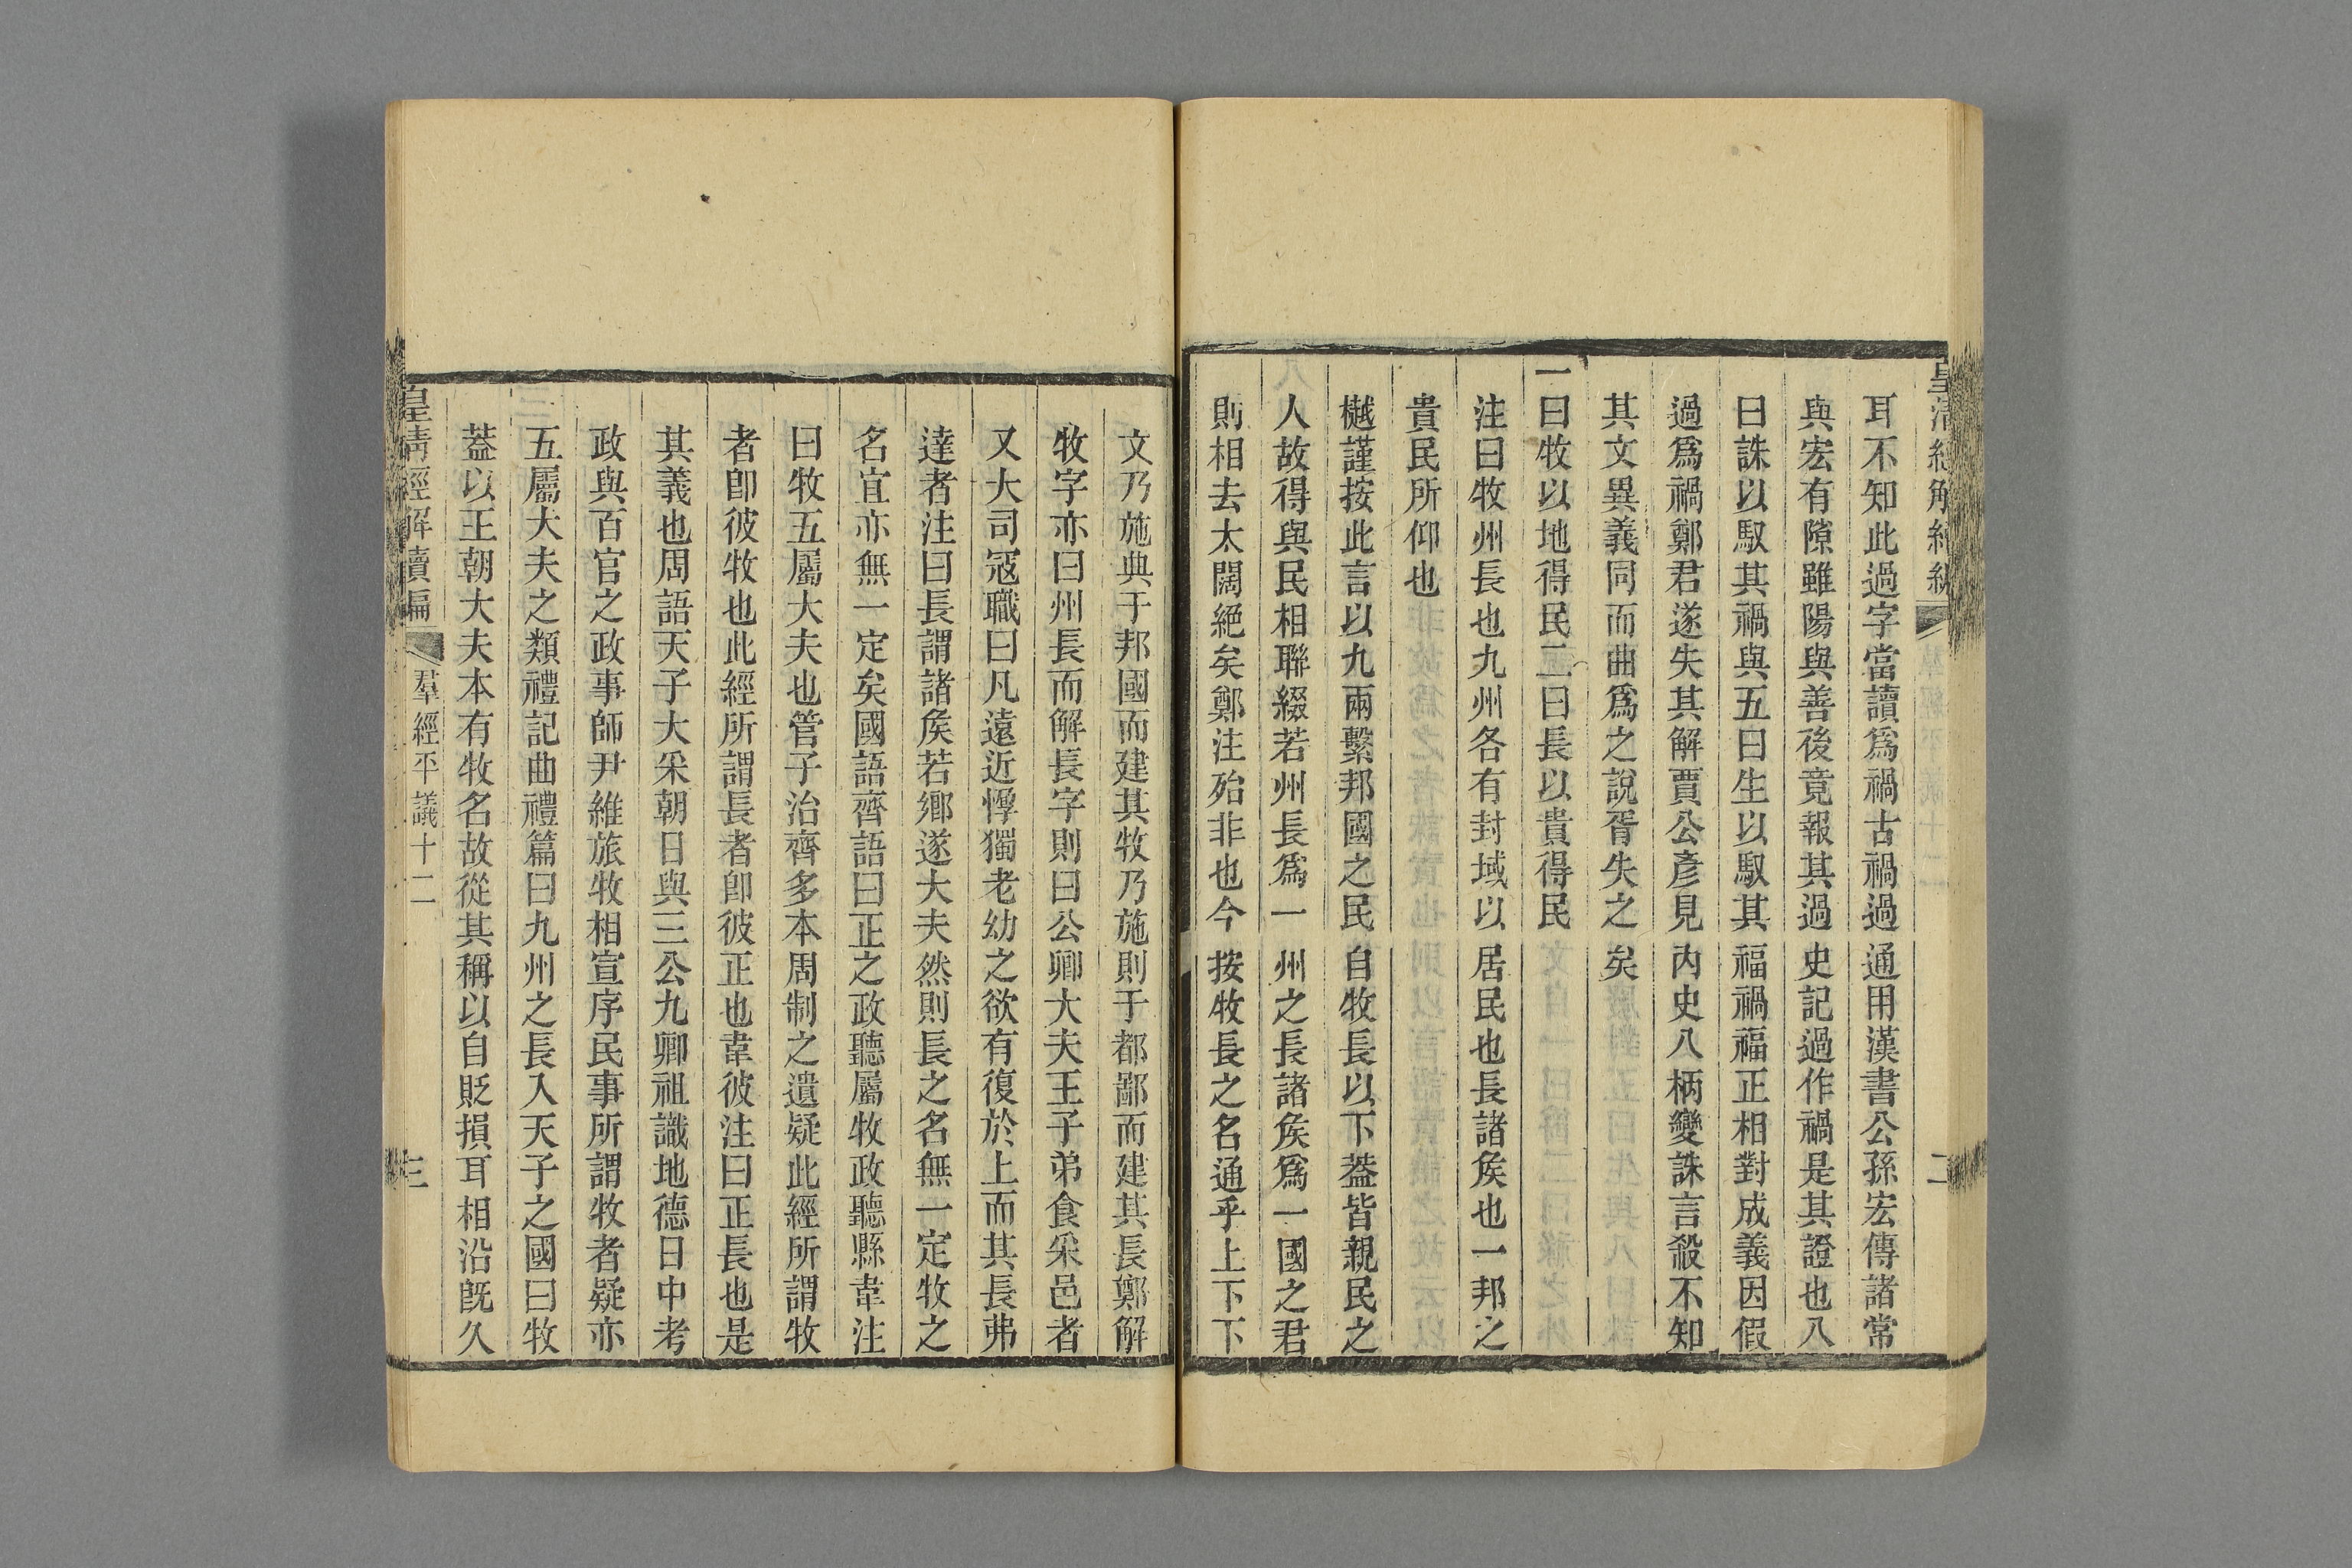 耳不知此過字當讀爲禍古禍過通用漢書公孫宏傳諸常
與宏有隙雖陽與善後竟報其過史記過作禍是其證也八
曰誅以馭其禍與五曰生以馭其福禍福正相對成義因假
過爲禍鄭君遂失其解賈公彥見內史八柄變誅言殺不知
其文異義同而曲爲之說胥失之矣
一曰牧以地得民二曰長以貴得民
注曰牧州長也九州各有封域以居民也長諸矦也一邦之
貴民所仰也
樾謹按此言以九兩繫邦國之民自牧長以下葢皆親民之
人故得與民相聯綴若州長爲一州之長諸矦爲一國之君
則相去太闊絕矣鄭注殆非也今按牧長之名通乎上下下
文乃施典于邦國而建其牧乃施則于都鄙而建其長鄭解
牧字亦曰州長而解長字則曰公卿大夫王子弟食采邑者
又大司寇職曰凡遠近惸獨老幼之欲有復於上而其長弗
達者注曰長謂諸矦若鄉遂大夫然則長之名無一定牧之
名宜亦無一定矣國語齊語曰正之政聽屬牧政聽縣韋注
曰牧五屬大夫也管子治齊多本周制之遺疑此經所謂牧
者卽彼牧也此經所謂長者卽彼正也韋彼注曰正長也是
其義也周語天子大采朝日與三公九卿祖識地德日中考
政與百官之政事師尹維旅牧相宣序民事所謂牧者疑亦
五屬大夫之類禮記曲禮篇曰九州之長入天子之國曰牧
葢以王朝大夫本有牧名故從其稱以自貶損耳相沿旣久
皇清經解續編
羣經平議十二
三